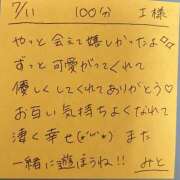 7/11 100分 I様
やっと会えて嬉しかったよ♡♡
ずっと可愛がってくれて
優しくしてくれてありがとう♡
お互い気持ちよくなれて
凄く幸せ(*´ω`*) また
一緒に遊ぼうね!! みと